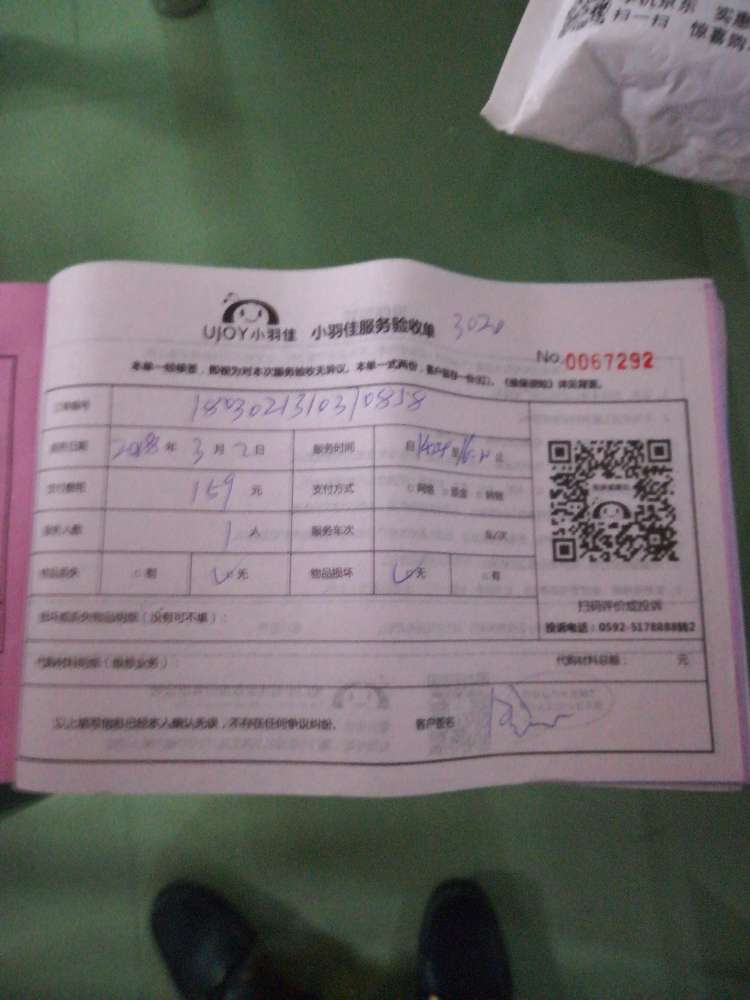 扫一扫 惊喜购
UJOY小羽佳 小羽佳服务验收单 3020
No.0067292
本单一经签署，即视为对本次服务验收无异议。本单一式两份，客户留存一份(红)。《维保须知》详见背面。
订单编号 1803021310310858
服务日期 2018年3月2日 服务时间 自 至 止
支付费用 159 元 支付方式 □网络 □现金 □转账
服务人数 1 人 服务车次 车/次
物品丢失 □有 □无 物品损坏 □无 □有
扫码评价或投诉
投诉电话：0592-5178888转2
损坏或丢失物品明细（没有可不填）：
代购材料明细（维修业务）： 代购材料总额： 元
以上填写信息已经本人确认无误，不存在任何争议纠纷。 客户签名